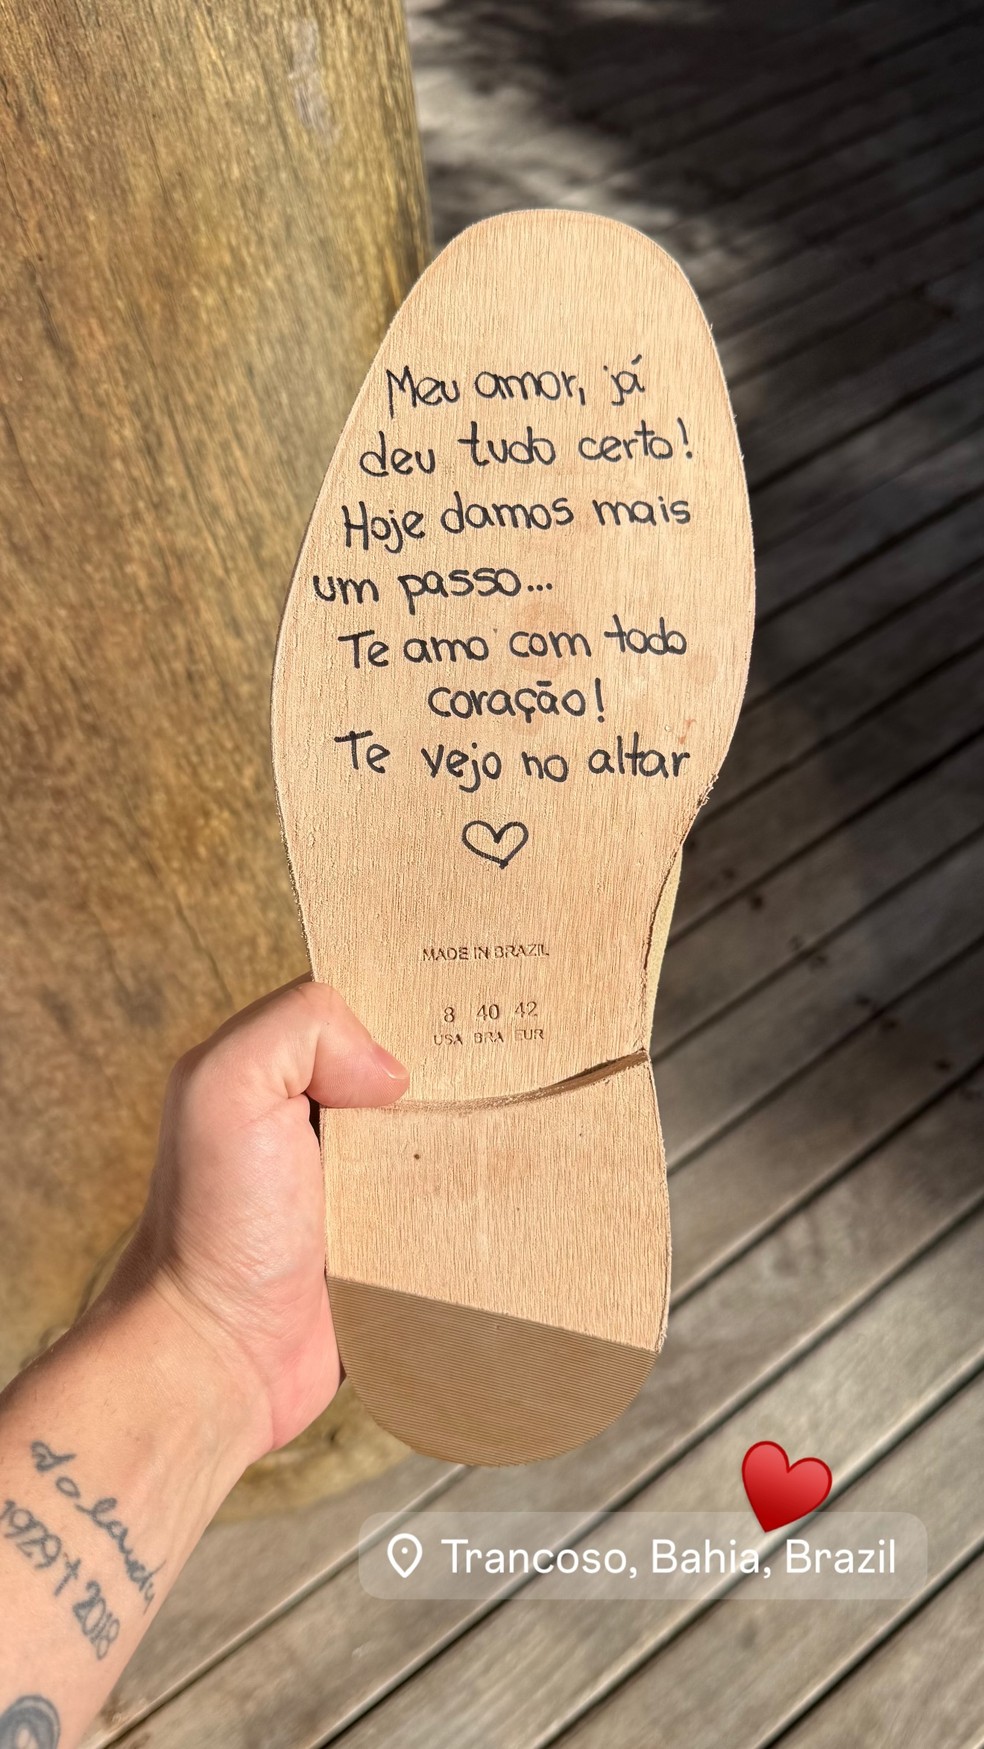 Meu amor, já
deu tudo certo!
Hoje damos mais
um passo...
Te amo com todo
coração!
Te vejo no altar
MADE IN BRAZIL
8 40 42
USA BRA EUR
1929 † 2018
Trancoso, Bahia, Brazil